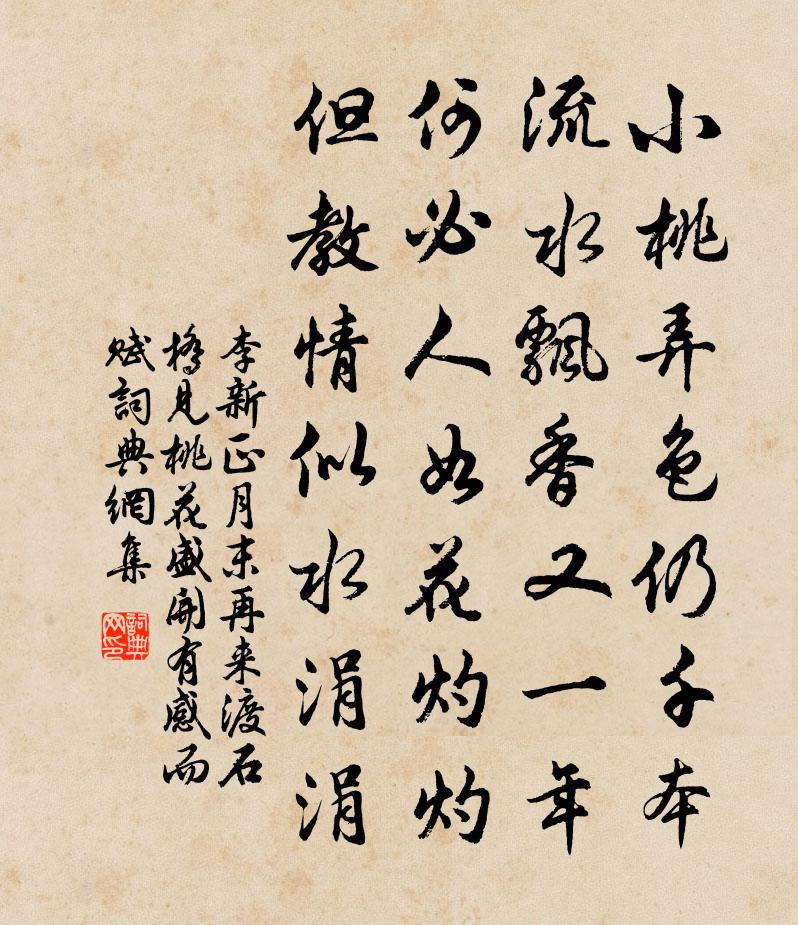 小桃弄色仍千本
流水飄香又一年
何必人如花灼灼
但教情似水涓涓
李新正月末再来渡石
橋見桃花盛開有感而
赋詞典網集
詞典
网印